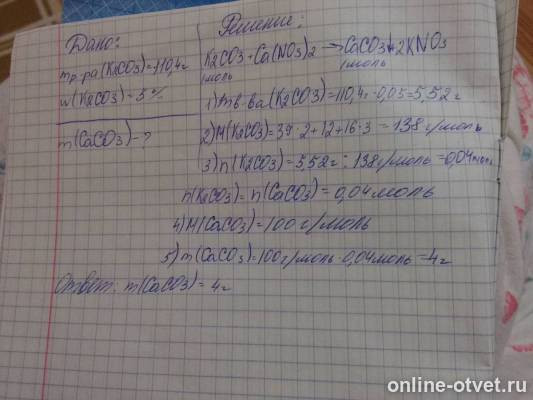 Дано:
mр-ра(K2CO3)=110,4г
w(K2CO3)=5%
m(CaCO3)-?
Решение:
K2CO3+Ca(NO3)2→CaCO3↓+2KNO3
1моль 1моль
1) mв-ва(K2CO3)=110,4г·0,05=5,52г
2) M(K2CO3)=39·2+12+16·3=138г/моль
3) n(K2CO3)=5,52г:138г/моль=0,04моль
n(K2CO3)=n(CaCO3)=0,04моль
4) M(CaCO3)=100г/моль
5) m(CaCO3)=100г/моль·0,04моль=4г
Ответ: m(CaCO3)=4г
online-otvet.ru